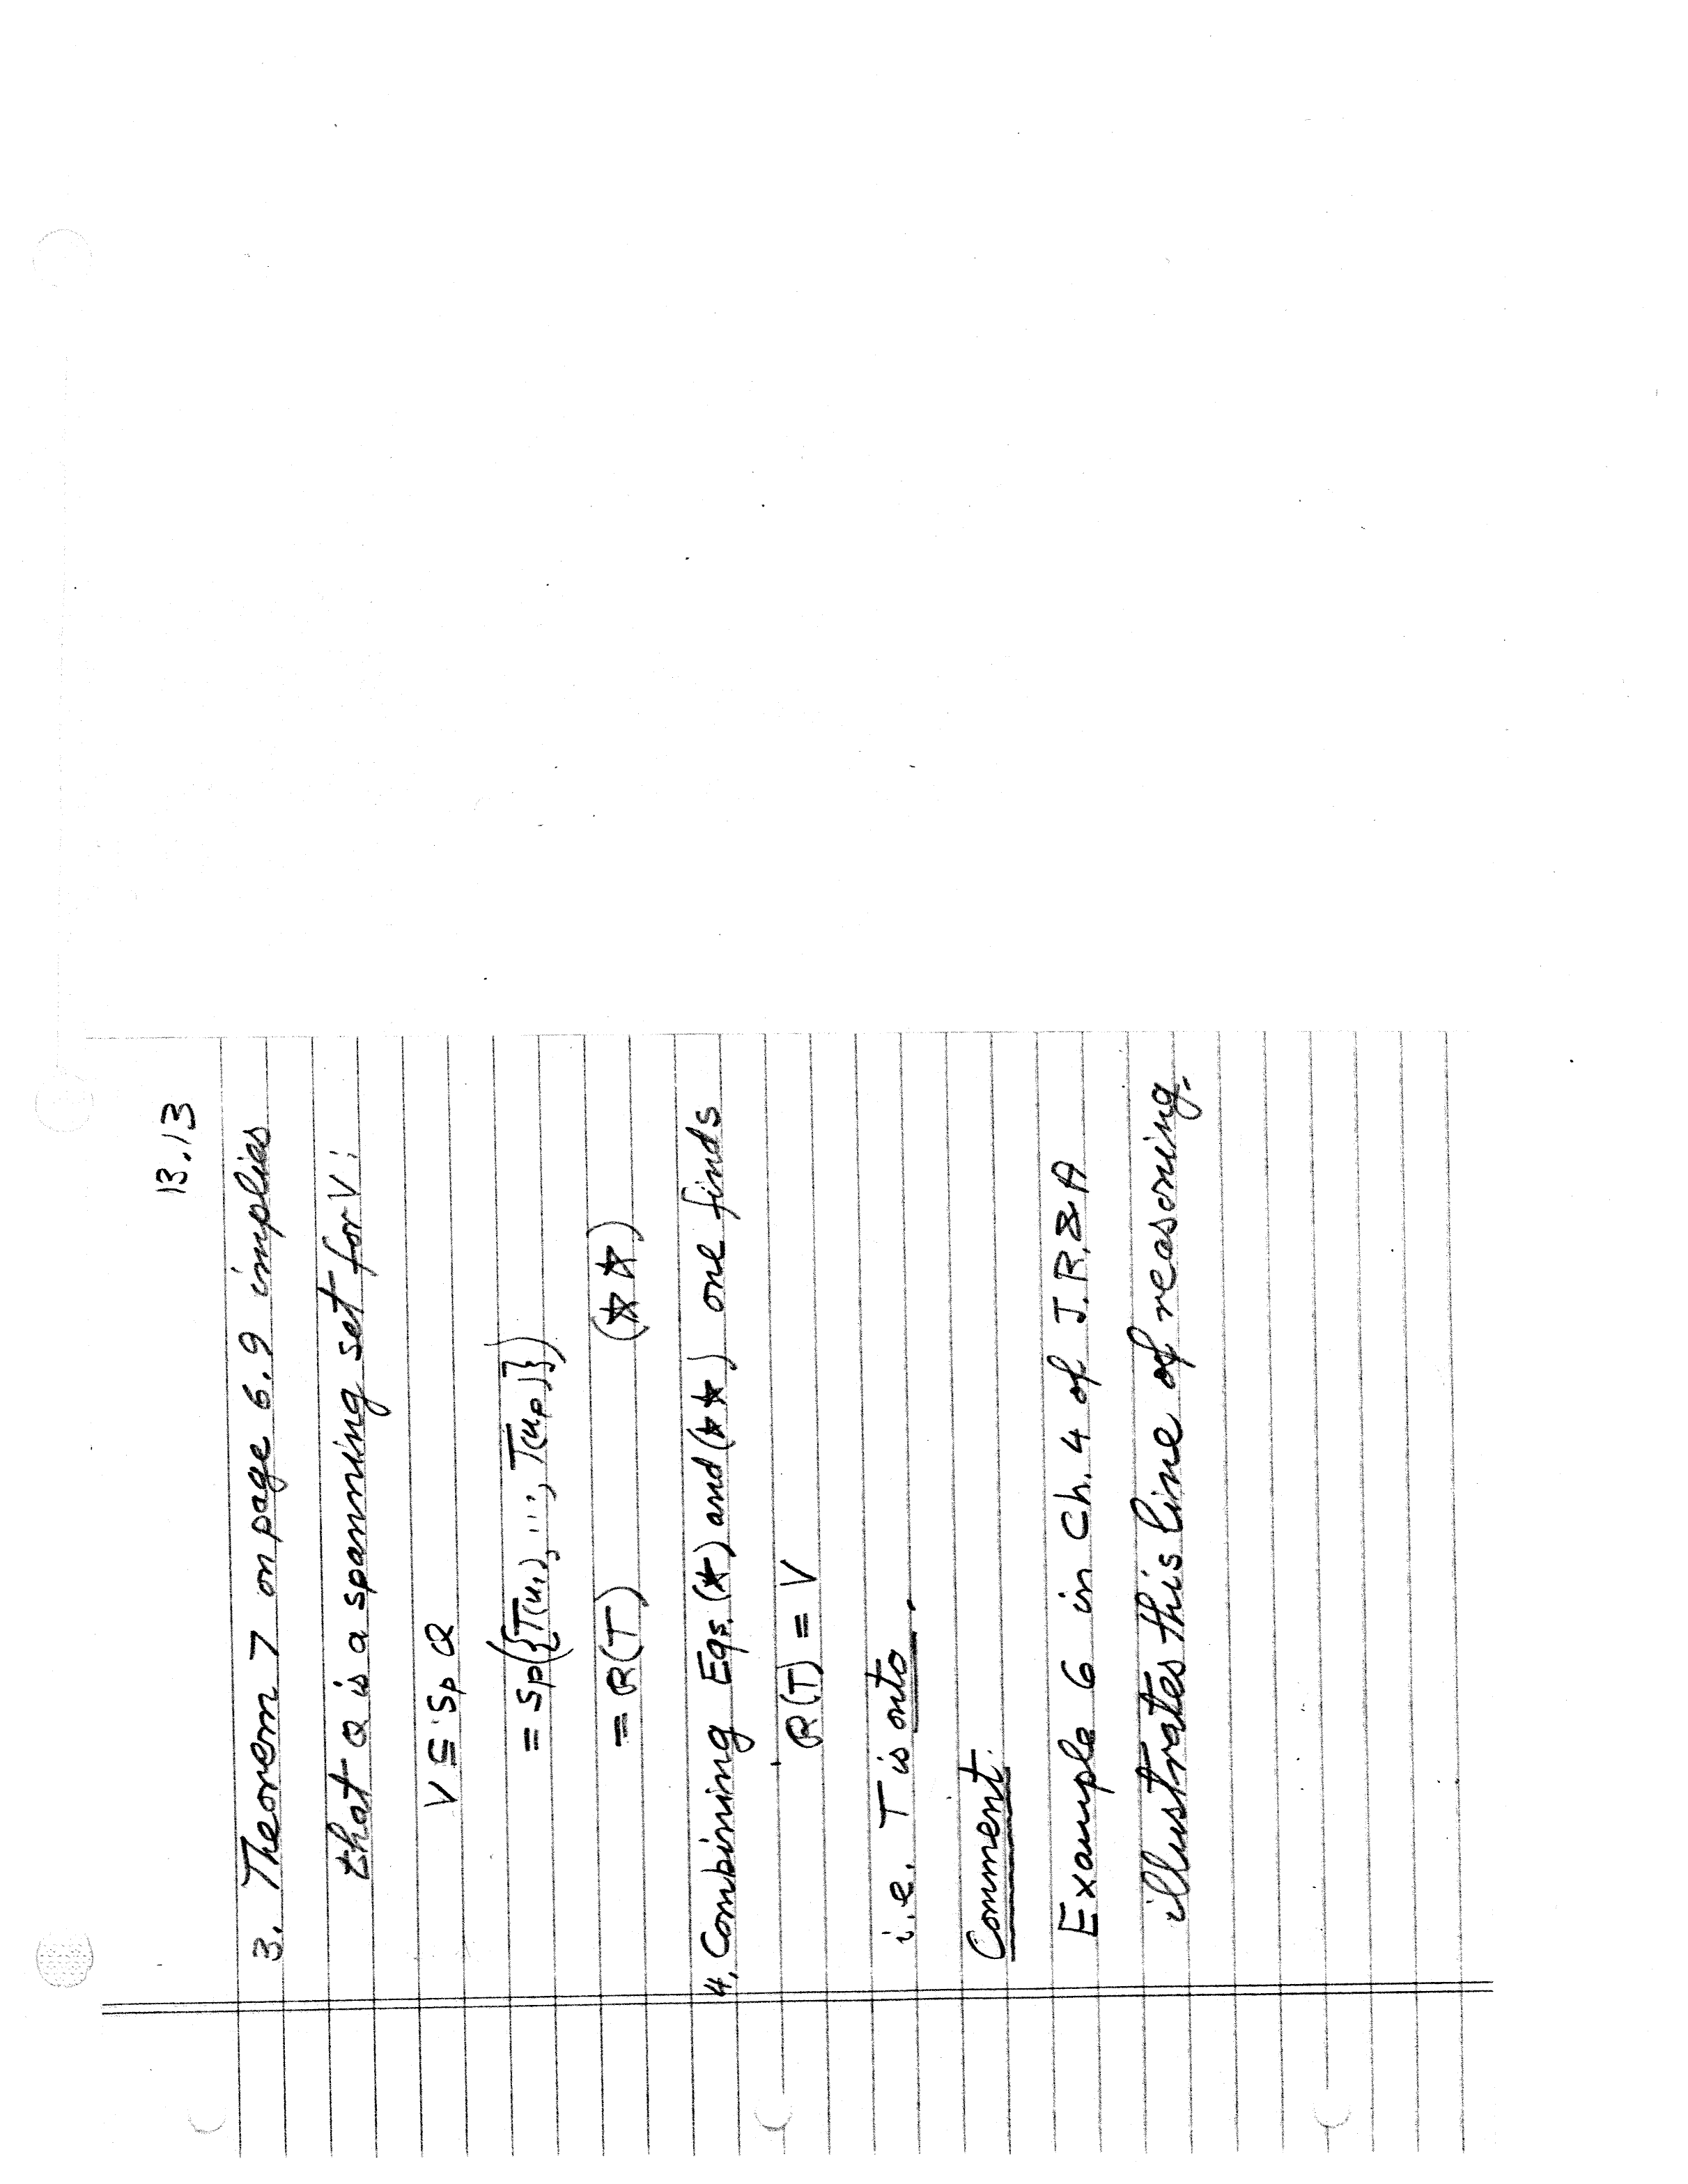 13.13
3. Theorem 7 on page 6.9 implies
that Q is a spanning set for V:
V ⊆ Sp Q
= Sp({T(u₁), ..., T(uₚ)})
= R(T) (☆☆)
4. Combining Eqs. (☆) and (☆☆) one finds
R(T) = V
i.e. T is onto.
Comment:
Example 6 in Ch. 4 of J.R.&A
illustrates this line of reasoning.